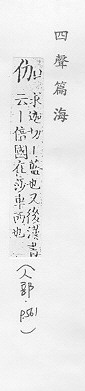 四聲篇海
伽
求迦切丨藍也又後漢書
云丨倍國在莎車西也
(人部·P.561)